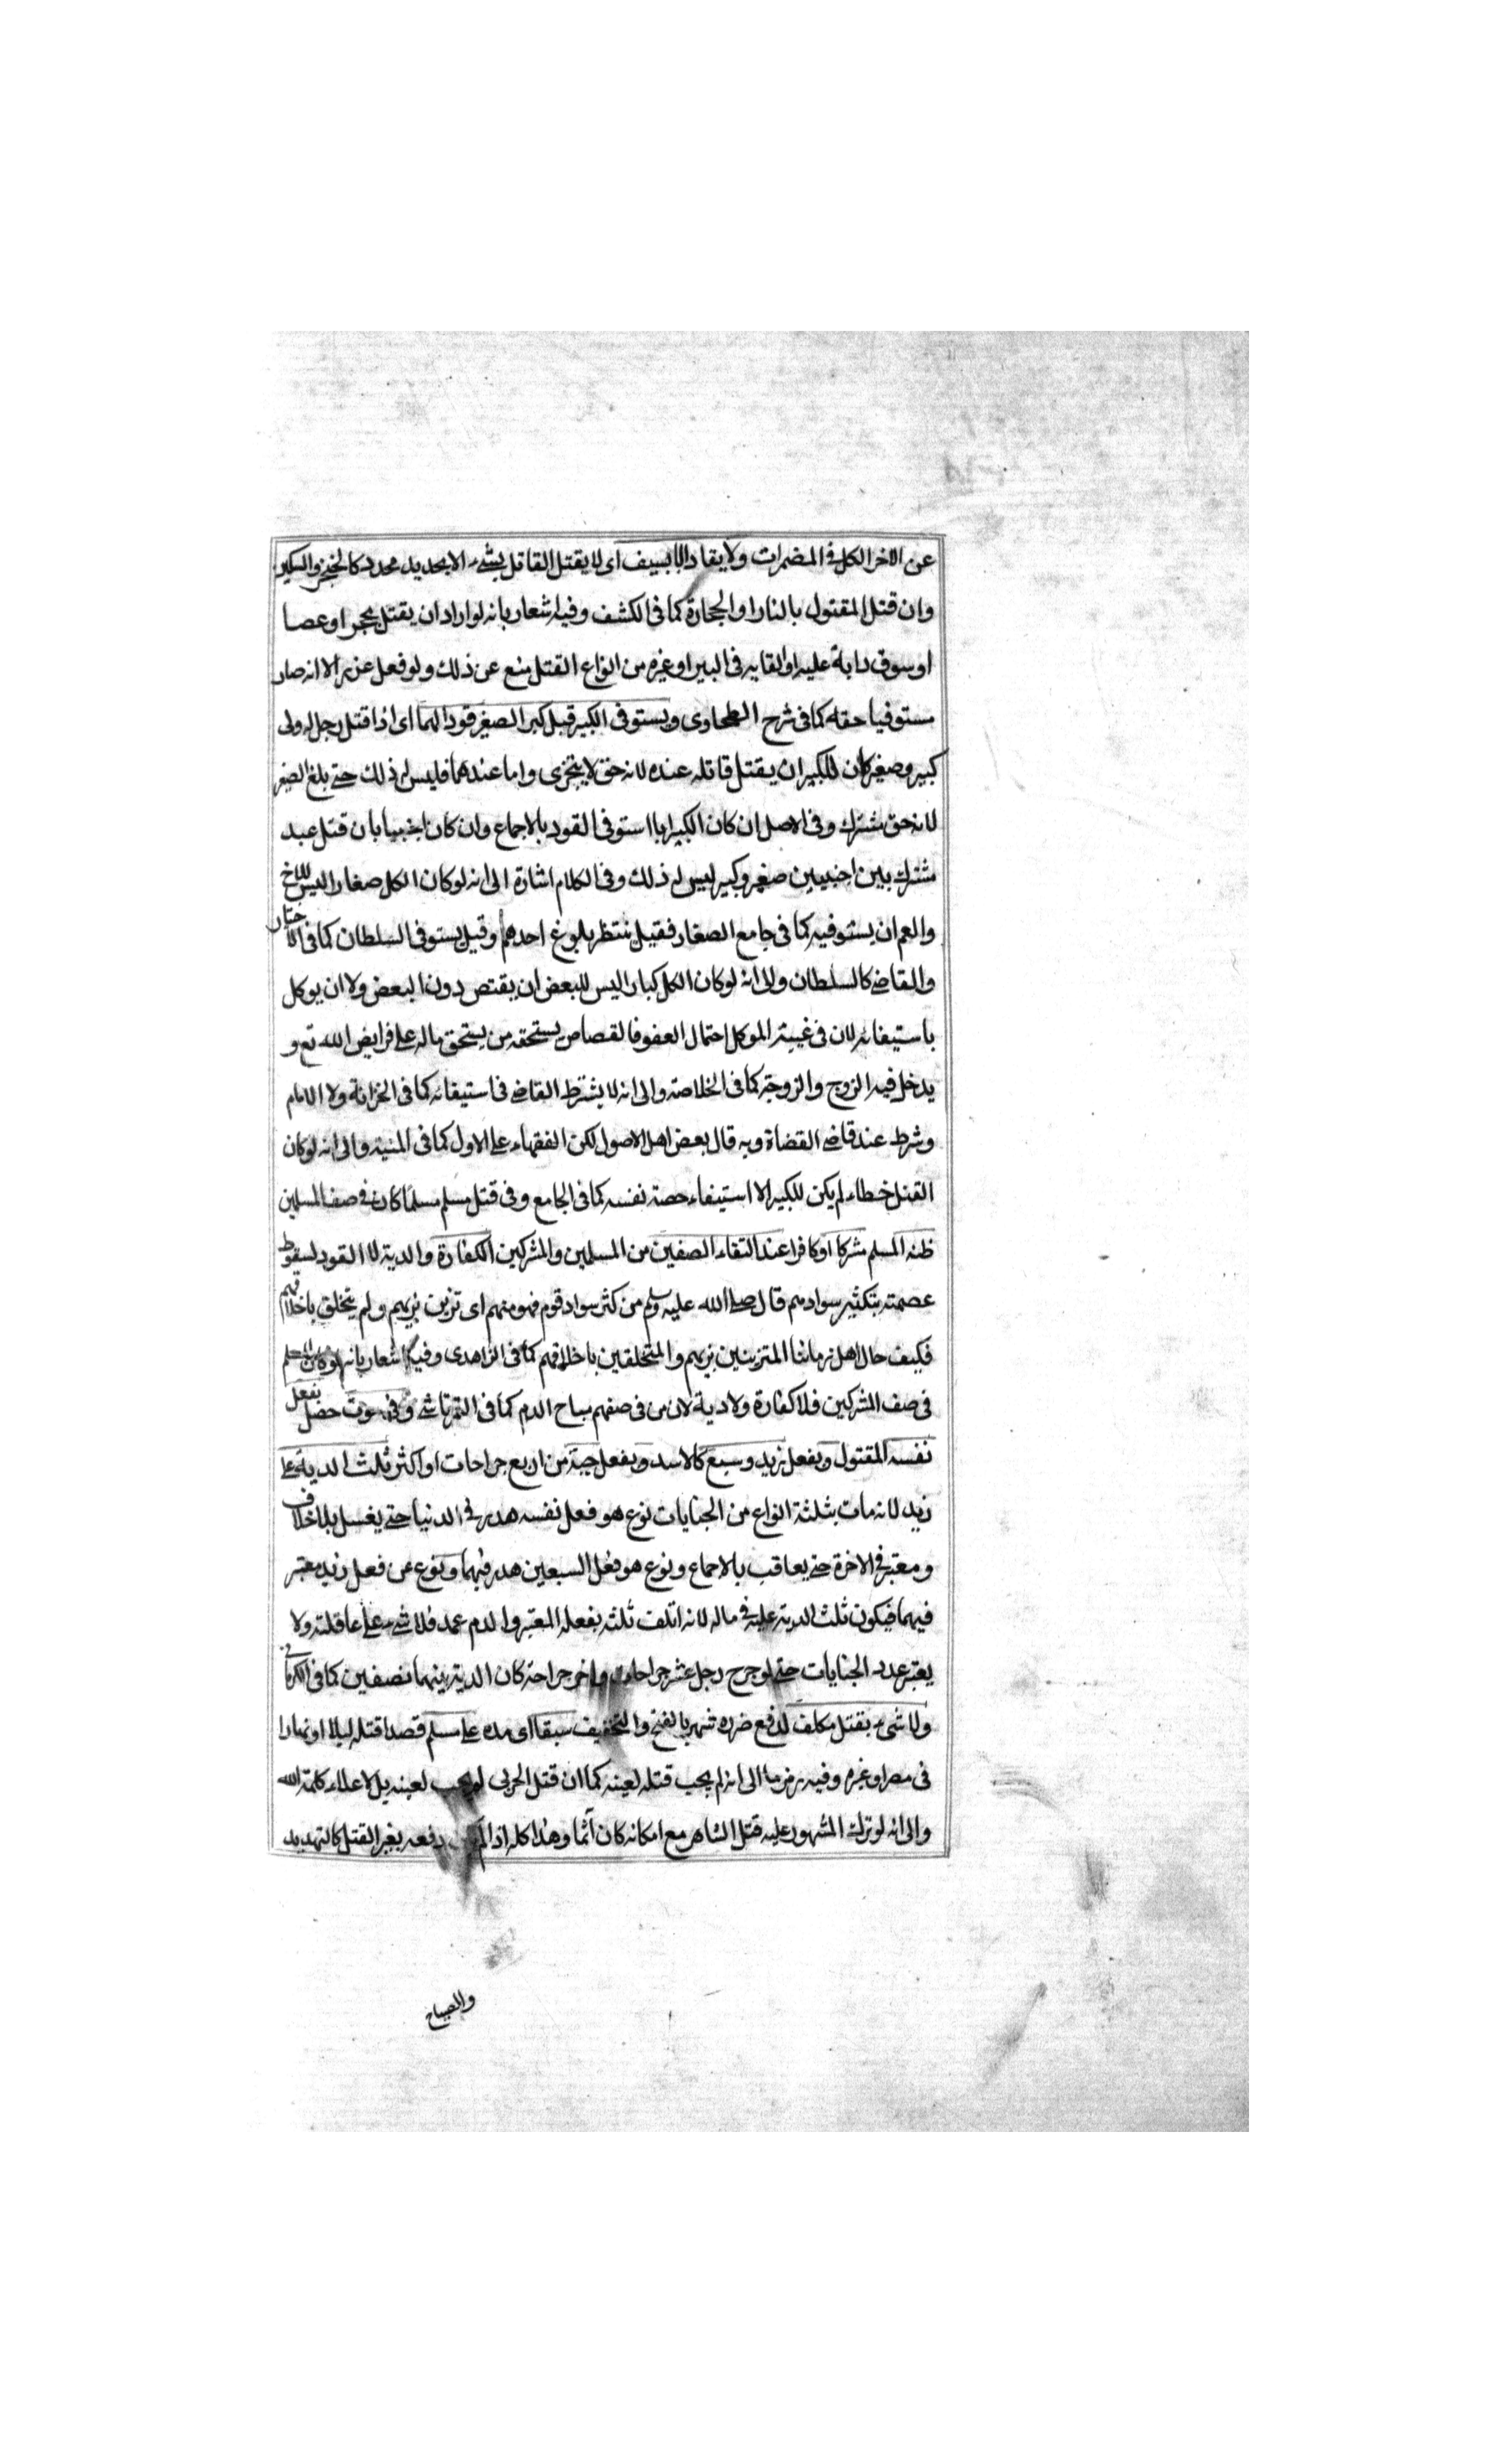 عن الاخر الكل في المضمرات ولا يقاد الا بسيف اى لا يقتل القاتل بشئ الا بحديد محدد كالخنجر والسكين
وان قتل المقتول بالنار او الحجارة كما فى الكشف وفيه اشعار بانه لو اراد ان يقتل بحجر او عصا
او سوق دابة عليه او القايه فى البير او غيره من انواع القتل منع عن ذلك ولو فعل عزر الا انه صار
مستوفيا حقه كما فى شرح الطحاوى ويستوفى الكبير قبل كبر الصغير قودا لهما اى اذا قتل رجل له ولى
كبير وصغير كان للكبير ان يقتل قاتله عنده لانه حق لا يتجزى واما عندهما فليس له ذلك حتى بلغ الصغير
لانه حق مشترك وفى الاصل ان كان الكبير ابا استوفى القود بالاجماع وان كان اجنبيا بان قتل عبد
مشترك بين اجنبيين صغير وكبير ليس له ذلك وفى الكلام اشارة الى انه لو كان الكل صغارا ليس للاخ
والعم ان يستوفيه كما فى جامع الصغار فقيل ننتظر بلوغ احدهم وقيل يستوفى السلطان كما فى الاختيار
والقاضى كالسلطان والى انه لو كان الكل كبارا ليس للبعض ان يقتص دون البعض ولا ان يوكل
باستيفائه لان فى غيبة الموكل احتمال العفو فالقصاص يستحقه من يستحق ماله على فرايض الله تع و
يدخل فيه الزوج والزوجة كما فى الخلاصة والى انه لا يشترط القاضى فى استيفائه كما فى الخزانة ولا الامام
وشرط عند قاضى القضاة وبه قال بعض اهل الاصول لكن الفقهاء على الاول كما فى المنية والى انه لو كان
القتل خطاء لم يكن للكبير الا استيفاء حصة نفسه كما فى الجامع وفى قتل مسلم مسلما كان فى صف المسلمين
ظنه المسلم مشركا او كافرا عند التقاء الصفين من المسلمين والمشركين الكفارة والدية لا القود لسقوط
عصمته بتكثير سوادهم قال صلى الله عليه وسلم من كثر سواد قوم فهو منهم اى تزين بزيهم ولم يتخلق باخلاقهم
فكيف حال اهل زماننا المتزينين بزيهم والمتخلقين باخلاقهم كما فى الزاهدى وفيه اشعار بانه لو كان المسلم
فى صف المشركين فلا كفارة ولا دية لان من فى صفهم مباح الدم كما فى التمرتاشى وفى موت حصل بفعل
نفسه المقتول وبفعل زيد وسبع كالاسد وبفعل حية من اربع جراحات او اكثر ثلث الدية على
زيد لانه مات بثلثة انواع من الجنايات نوع هو فعل نفسه هدر فى الدنيا حتى يغسل بلا خلاف
ومعتبر فى الاخرة حتى يعاقب بالاجماع ونوع هو فعل السبعين هدر فيهما ونوع من فعل زيد معتبر
فيهما فيكون ثلث الدية عليه فى ماله لانه اتلف ثلثه بفعله المعتبر والدم عمد فلا شئ على عاقلته ولا
يعتبر عدد الجنايات حتى لو جرح رجل عشر جراحات واخر جراحة كان الدية بينهما نصفين كما فى الكرمانى
ولا شئ بقتل مكلف لدفع ضرره شهر بالفتح والتخفيف سيفا اى مده على مسلم قصدا قتله ليلا او نهارا
فى مصر او غيره وفيه رمز ما الى انه لم يجب قتله لعينه كما ان قتل الحربى لم يجب لعينه بل لاعلاء كلمة الله
والى انه لو ترك المشهور عليه قتل الشاهر مع امكانه كان آثما وهذا كله اذا لم دفعه بغير القتل كالتهديد
والصياح